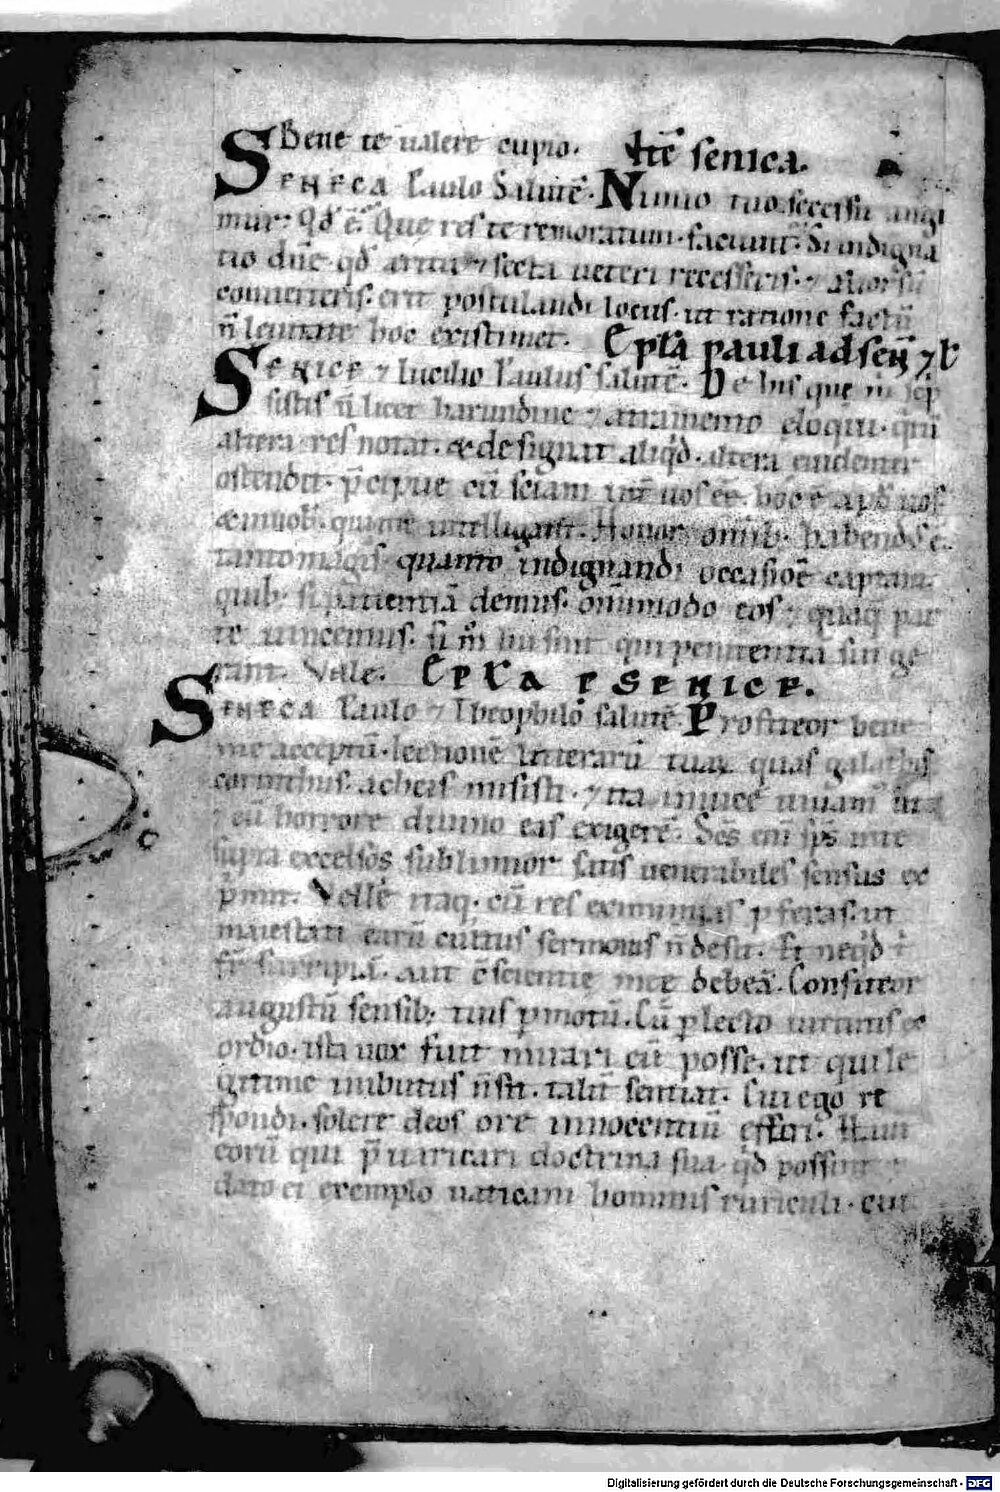 Bene te ualere cupio. Itē senica.
SENECA Paulo Salutē. Nimio tuo secessu angi
mur. Qd̄ ē. Que res te remoratum faciunt. Si indigna
tio dn̄e qd̄ a ritu ⁊ secta ueteri recesseris. ⁊ alior̄ sū
conuerteris. erit postulandi locus. ut ratione factū
n̄ leuitate hoc existimet. Epl̄a pauli ad señ ⁊ l̄
SENICE ⁊ lucilio Paulus salutē. De his que m̄ scp̄
sistis n̄ licet harundine ⁊ atramento eloqui. quū
altera res notat. & designat aliqd̄. altera euidenter
ostendit. p̄cipue cū sciam int̄ uos eē. hoc ē apd̄ uos
& in uob̄. qui me intelligant. Honor omīb. habend'ē.
tanto magis quanto indignandi occasionē captant.
quib. si patientiā demus. omnimodo eos ⁊ quaq par
te uincemus. si m̄ hi sint qui penitentiā sui ge
rant. Vale. EPL'A SENICE.
SENECA Paulo ⁊ Theophilo salutē. Profiteor bene
me acceptū. lectionē litterarū tuar̄ quas galathis
corinthiis. acheis misisti. ⁊ ita inuicē uiuam' ut
⁊ cū horrore diuino eas exigere. Sc̄s eni sp̄s in te
supra excelsos sublimior satis uenerabiles sensus ex
p̄mit. Vellē itaq. cū res eximias p̄feras. ut
maiestati earū cultus sermonis n̄ desit. Et neqd̄ t̄
fr̄ surripiā. aut c̄scientie mee debeā. Confiteor
augustū sensib. tuis p̄motū. Cū p̄lecto uirtutis ex
ordio. ista uox fuit mirari eū posse. ut qui le
gitime imbutus n̄ sit. talit̄ sentiat. Cui ego re
spondi. solere deos ore innocentiū effari. Haut
eorū qui p̄uaricari doctrina sua qd̄ possint
dato ei exemplo uaticani hominis ruriculi. cui
Digitalisierung gefördert durch die Deutsche Forschungsgemeinschaft - DFG